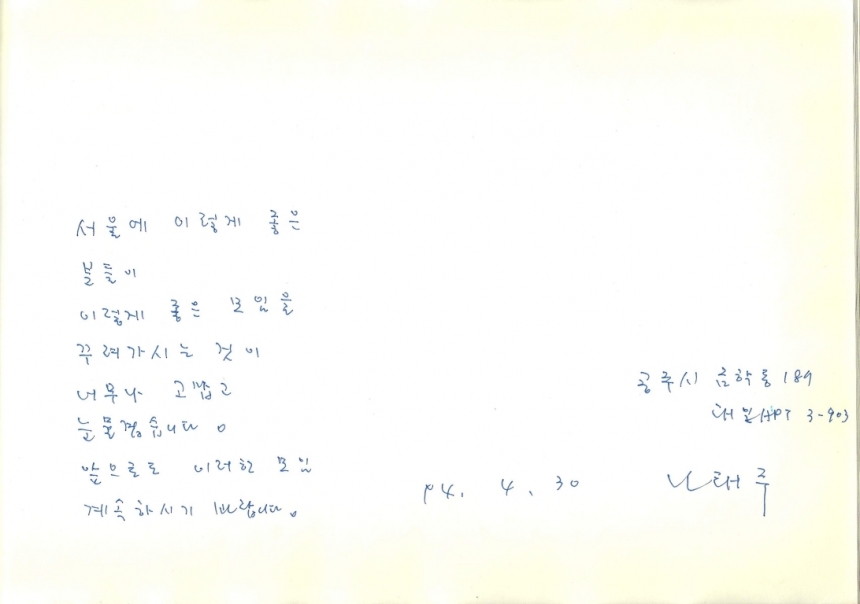 서울에 이렇게 좋은
분들이
이렇게 좋은 모임을
꾸려가시는 것이
너무나 고맙고
눈물겹습니다.
앞으로도 이러한 모임
계속하시기 바랍니다.
공주시 금학동 189
대일APT 3-903
94. 4. 30
나태주